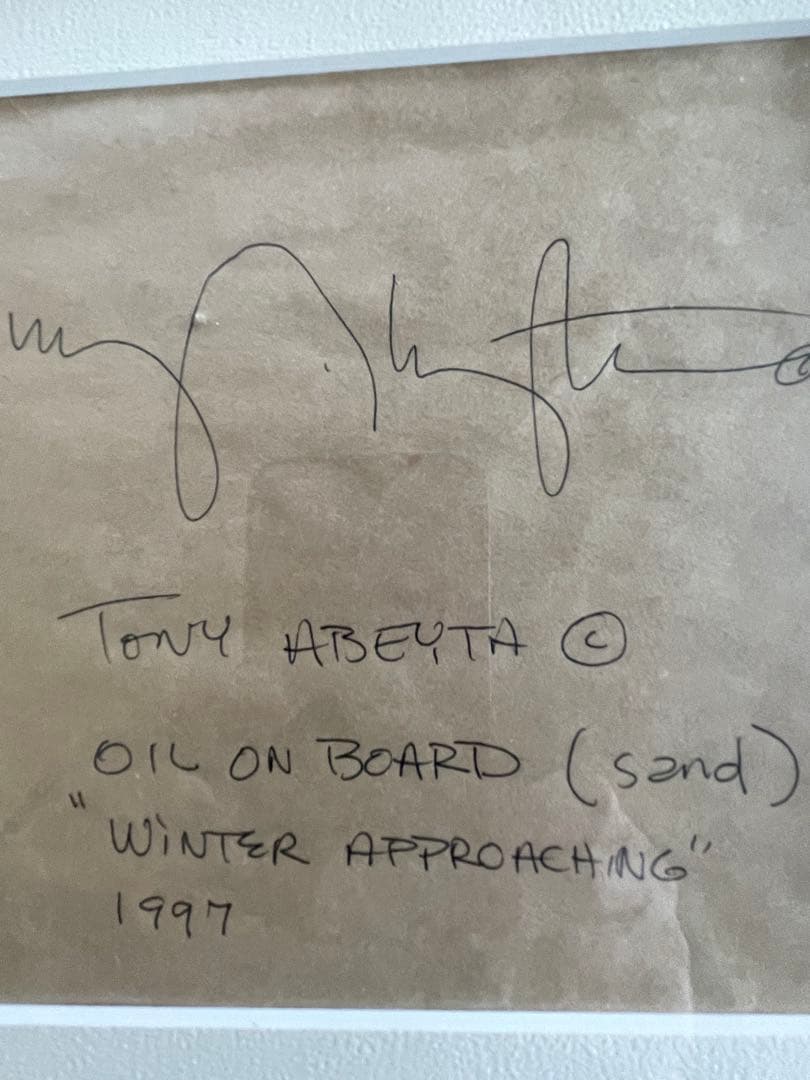 Tony ABEYTA ©
OIL ON BOARD (sand)
"WINTER APPROACHING"
1997